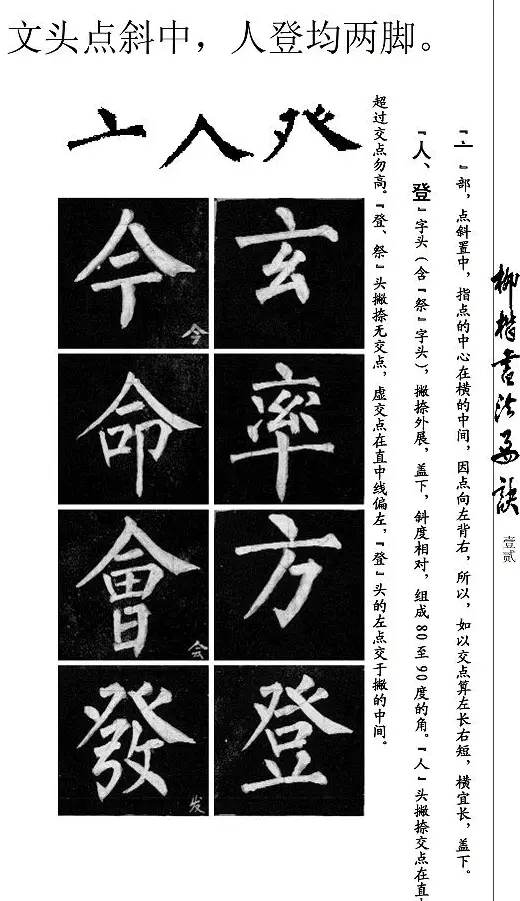 文头点斜中，人登均两脚。
柳楷书法要诀
壹贰
『亠』部，点斜置中，指点的中心在横的中间，因点向左背右，所以，如以交点算左长右短，横宜长，盖下。
『人、登』字头（含『祭』字头），撇捺外展，盖下，斜度相对，组成80至90度的角。『人』头撇捺交点在直
超过交点勿高。『登、祭』头撇捺无交点，虚交点在直中线偏左，『登』头的左点交于撇的中间。
亠人癶
玄
率
方
登
今
今
命
會
会
發
发